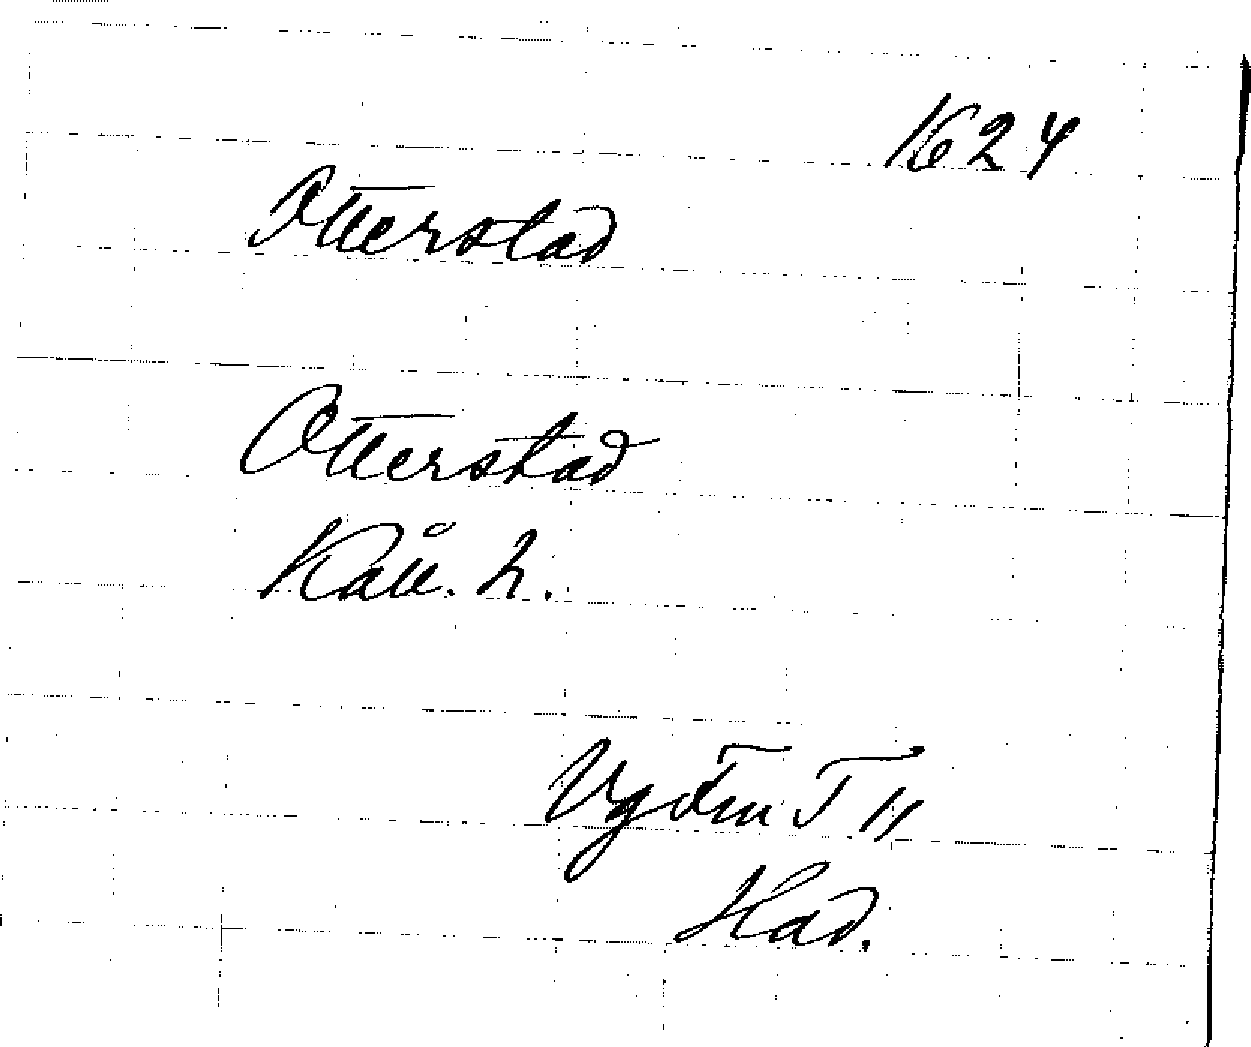 1624
Otterstad
Otterstad
Kåll. h.
T 11
Had.